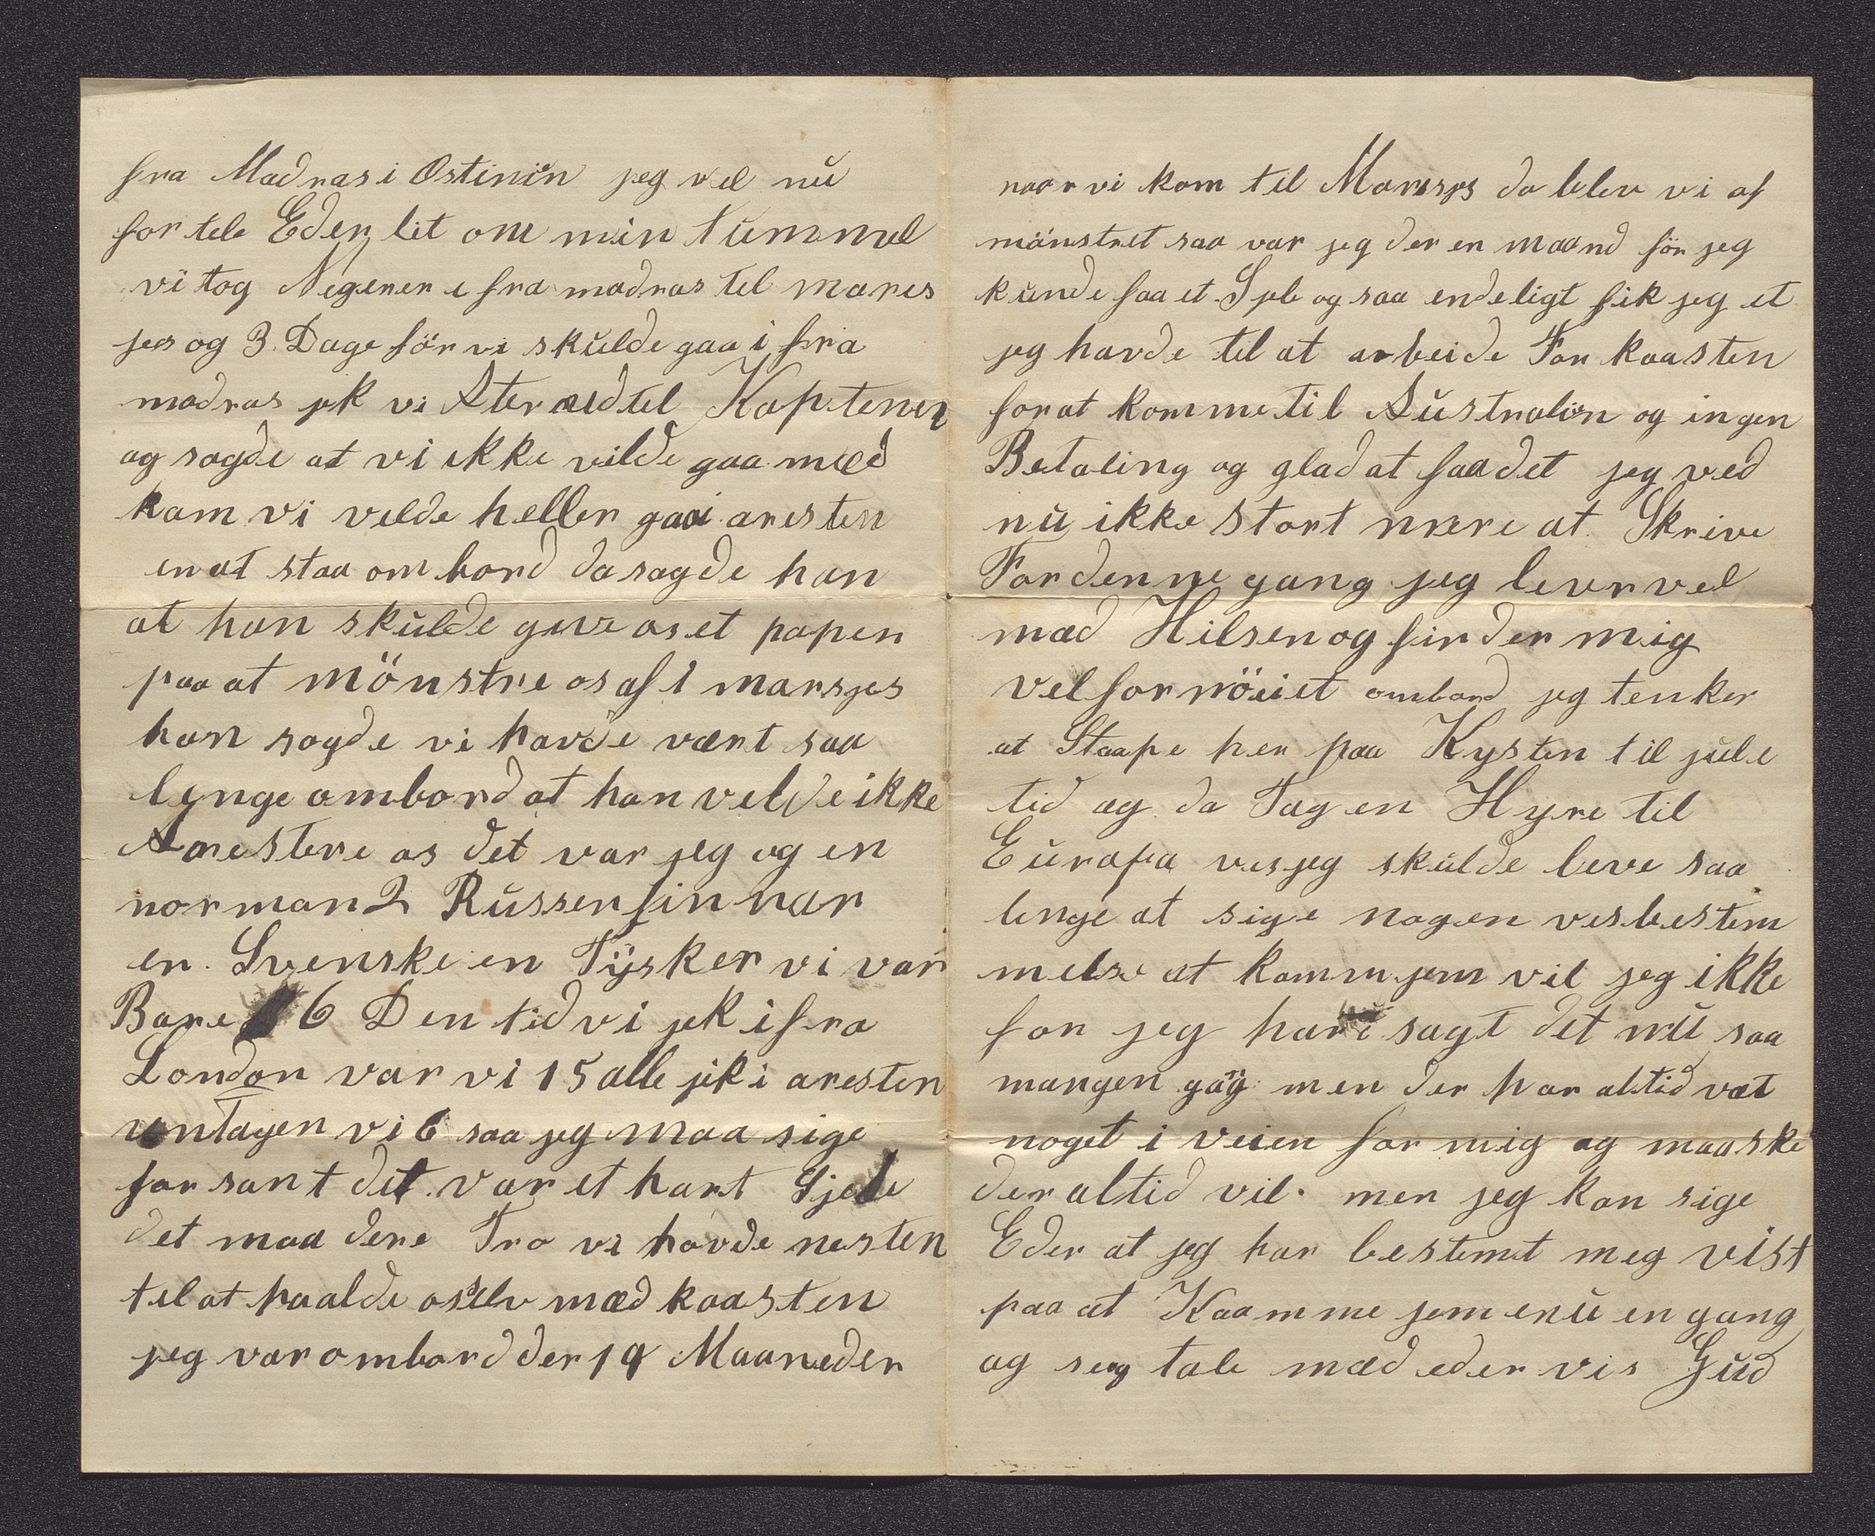 fra Madras i Ostinin jeg vel nu
for tele Eder lit om min Tummel
vi tog Negerer i fra madras til mares
jes og 3. Dage för vi skulde gaa i fra
madras jek vi Ater ud til Kaptenen
og sagde at vi ikke vilde gaa mæd
ham vi velde heller gaa i aresten
en at staa om bord da sagde han
at han skulde give os et papen
paa at mönstre os af i marsjes
han sagde vi havde vært saa
lenge ombord at han velde ikke
Arestere os det var jeg og en
norman 2 Russerfinnar
en Svenske en Tysker vi var
Bare 6 Den tid vi jek i fra
London var vi 15 alle jik i aresten
untagen vi 6 saa jeg maa sige
for sant det var et hart Sjele
det maa dere Tro vi havde nesten
tel at haalde os selv mæd kaasten
jeg var ombord der 19 Maaneder
naar vi kom til Marsjes da blev vi af
mönstret saa var jeg der en maand för jeg
kunde faa et Sjeb og saa endeligt fik jeg et
jeg havde til at arbeide For kaasten
for at komme til Australien og ingen
Betaling og glad at faa det jeg ved
nu ikke stort mere at Skrive
For denne gang jeg lever vel
mæd Hilsen og finder mig
vel fornöiet ombord jeg tenker
at Staape her paa Kysten til jule
tid og da Tag en Hyre til
Europa ves jeg skulde leve saa
lenge at sige nogen vesbestem
melse at komm jem vil jeg ikke
for jeg har sagt det nu saa
mangen gang men der har altid væt
noget i veien for mig og maaske
der altid vil men jeg kan sige
Eder at jeg har bestemt meg vist
paa at Kaamme jem enu en gang
og seog tale mæd eder vis Gud